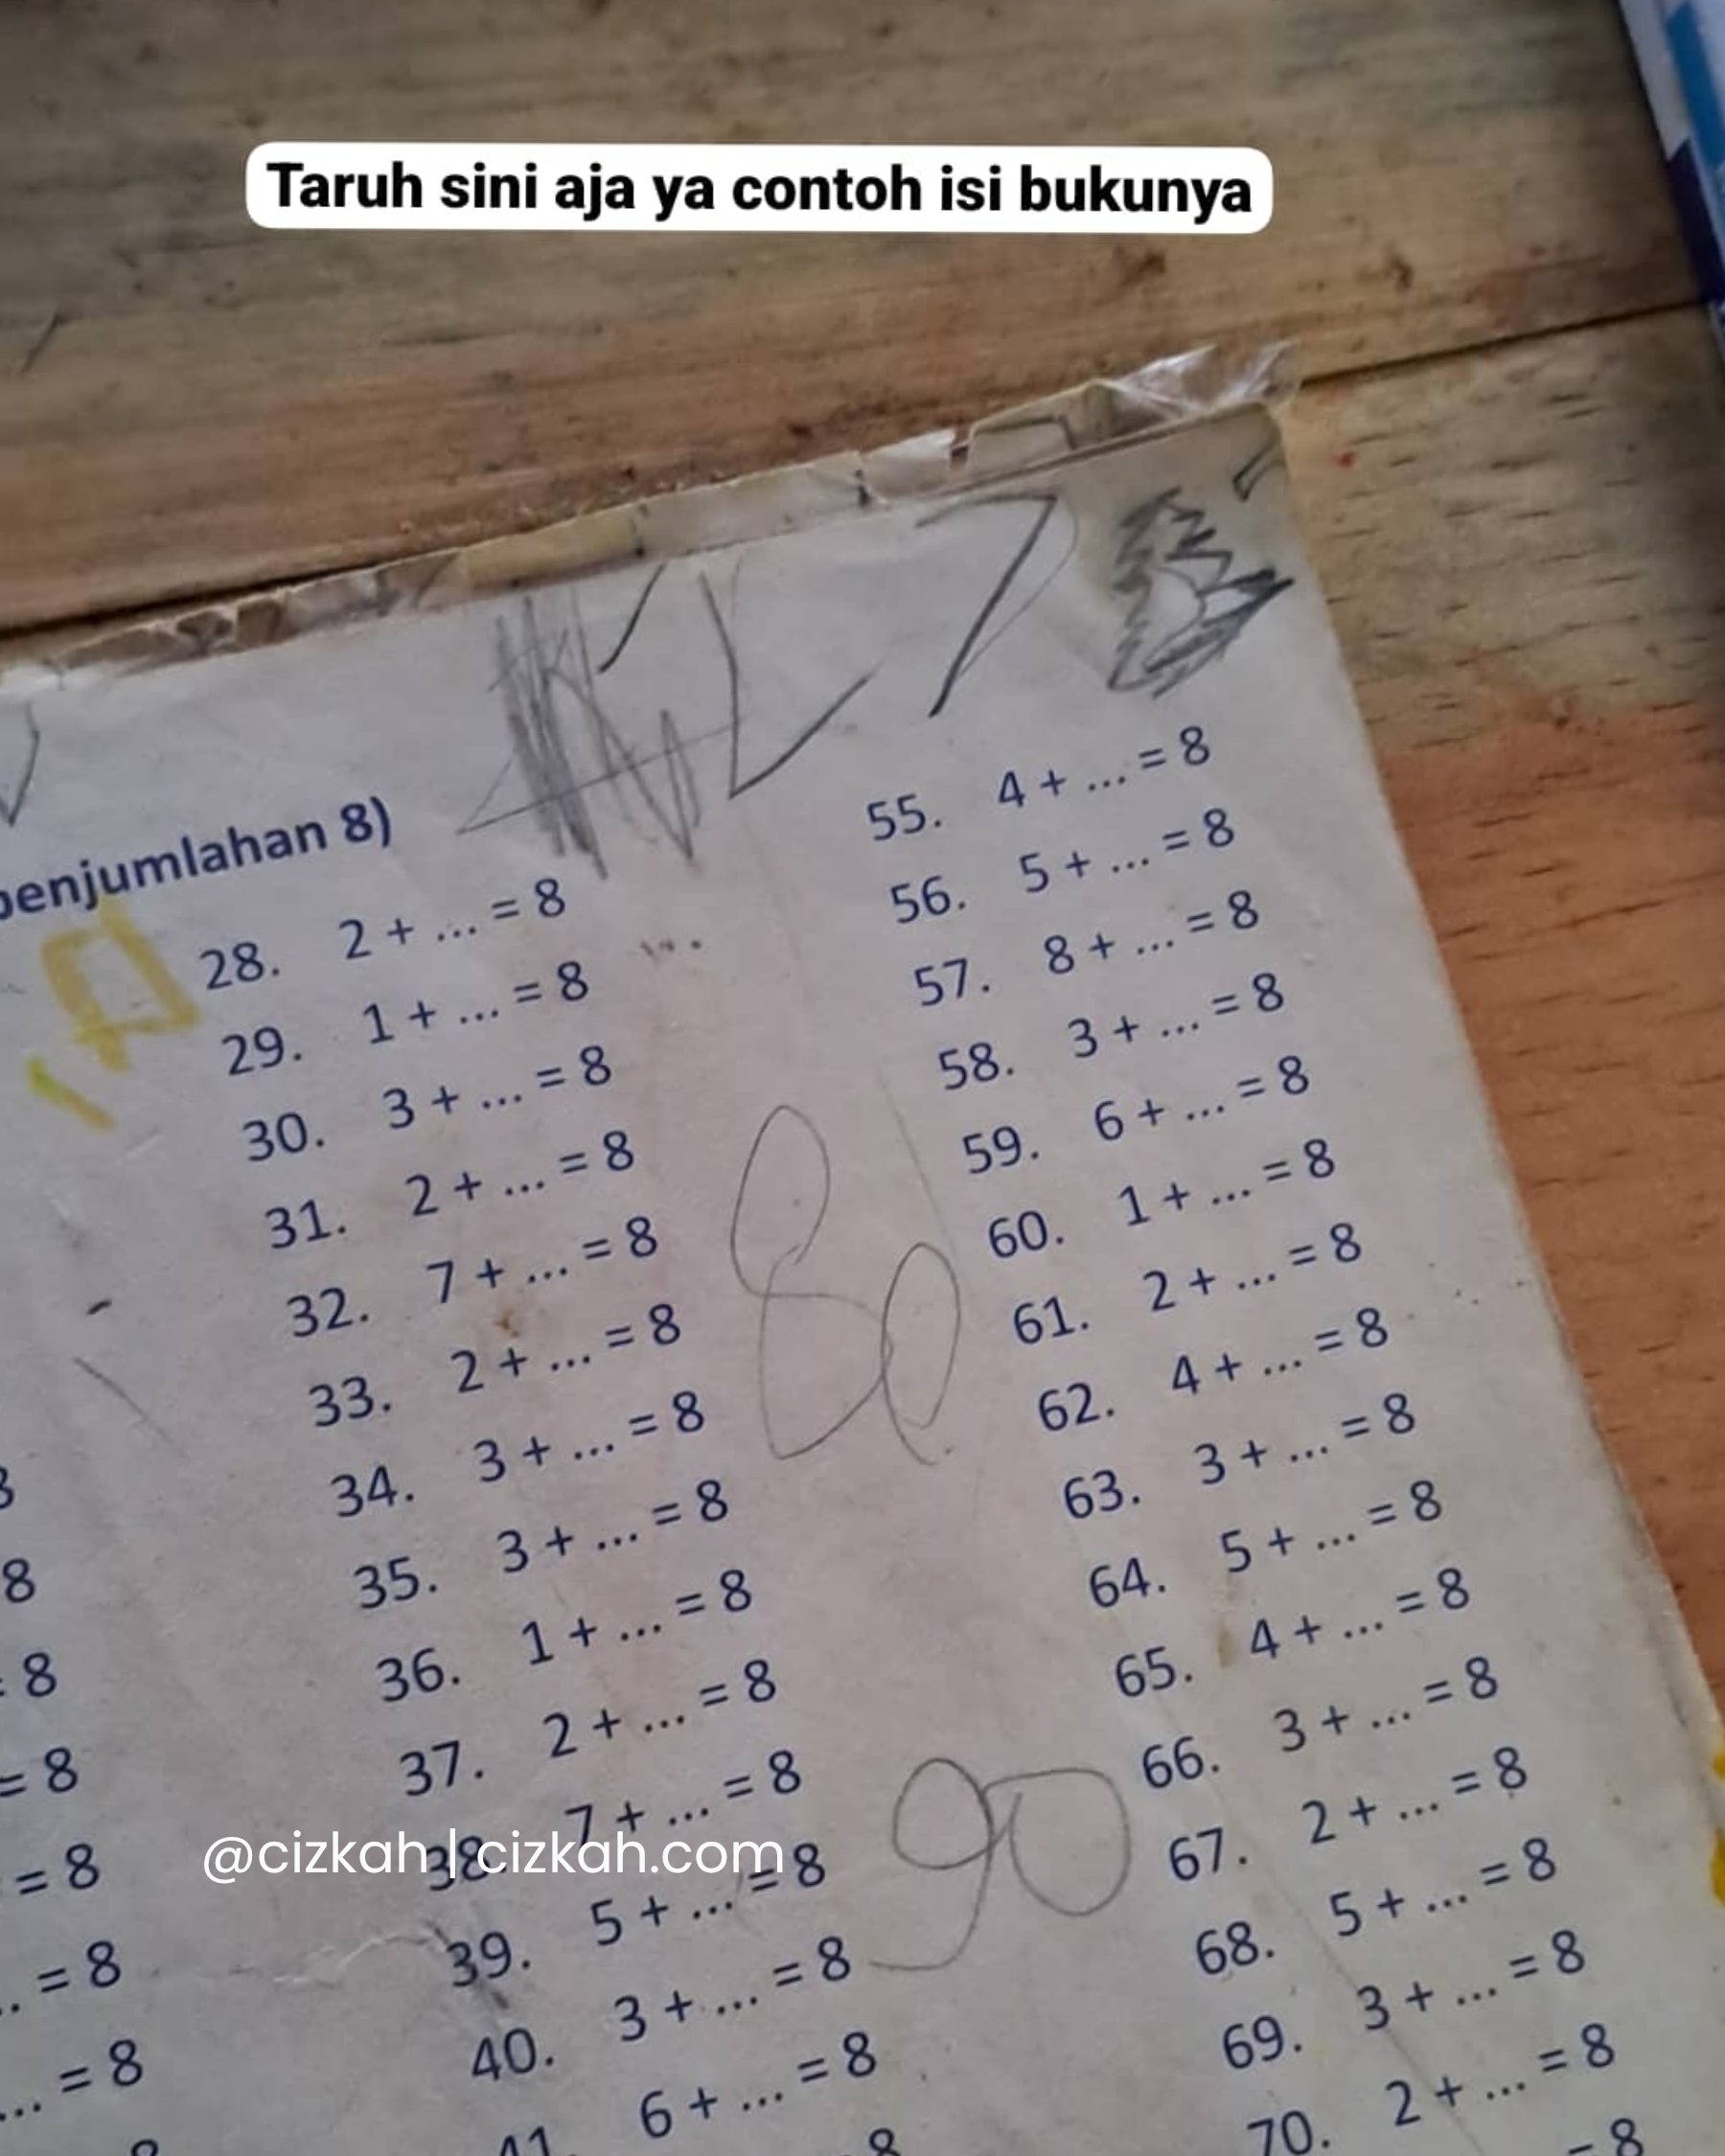 Taruh sini aja ya contoh isi bukunya
penjumlahan 8)
28. 2 + ... = 8
29. 1 + ... = 8
30. 3 + ... = 8
31. 2 + ... = 8
32. 7 + ... = 8
33. 2 + ... = 8
34. 3 + ... = 8
35. 3 + ... = 8
36. 1 + ... = 8
37. 2 + ... = 8
38. 7 + ... = 8
39. 5 + ... = 8
40. 3 + ... = 8
41. 6 + ... = 8
55. 4 + ... = 8
56. 5 + ... = 8
57. 8 + ... = 8
58. 3 + ... = 8
59. 6 + ... = 8
60. 1 + ... = 8
61. 2 + ... = 8
62. 4 + ... = 8
63. 3 + ... = 8
64. 5 + ... = 8
65. 4 + ... = 8
66. 3 + ... = 8
67. 2 + ... = 8
68. 5 + ... = 8
69. 3 + ... = 8
70. 2 + ... = 8
80
90
@cizkah | cizkah.com